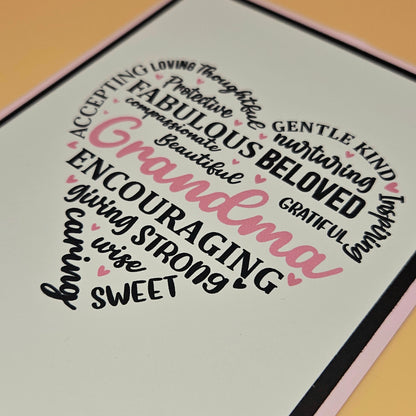 LOVING Thoughtful
ACCEPTING Protective GENTLE KIND
FABULOUS nurturing
compassionate BELOVED Inspiring
Beautiful GRATIFUL
Grandma
ENCOURAGING
giving STRONG
caring wise
SWEET